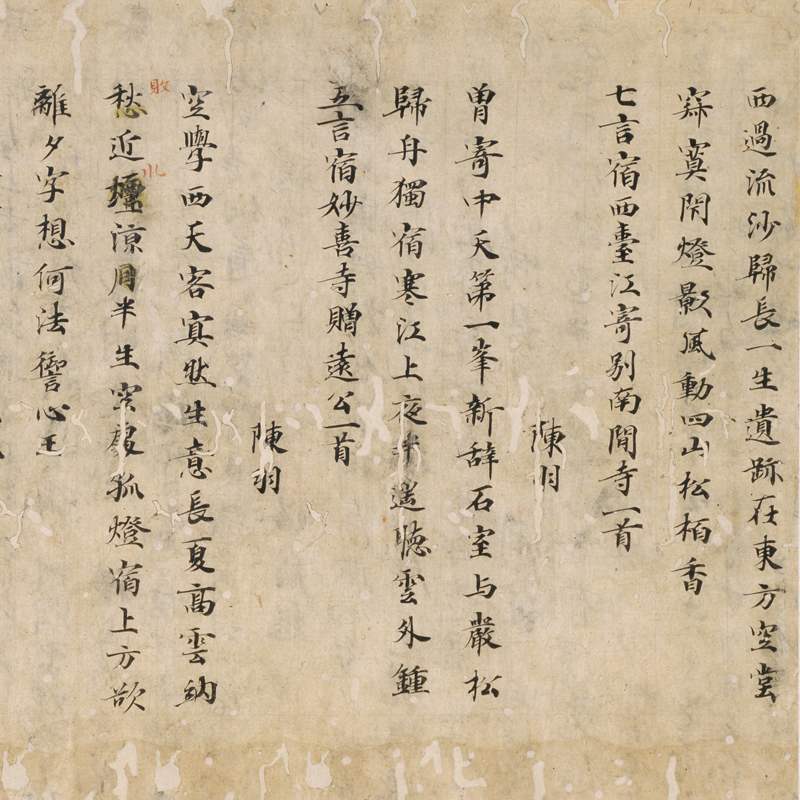 西過流沙歸長一生遺跡在東方空堂
寂寞閇燈影風動四山松栢香
七言宿西臺江寄別南閒寺一首
陳羽
曽寄中天第一峯新辞石室与嚴松
歸舟獨宿寒江上夜半遥聴雲外鍾
五言宿妙喜寺贈遠公一首
陳羽
空學西天客寘狀生意長夏髙雲納
敗
愁近壇涼月半生室孤燈宿上方欲
離夕字想何法讐心王